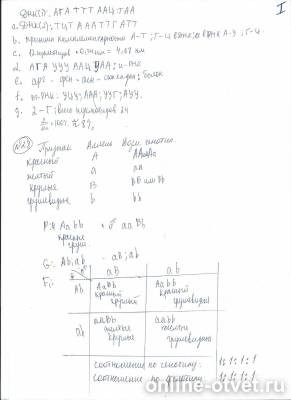 I
ДНК(1): АГА ТТТ ААЦ ЦАА
ДНК(2): ТЦТ ААА ТТГ АТТ
b. принцип комплементарности А-Т; Г-Ц А-У; Г-Ц
c. = 4.08 нм
d. АГА УУУ ААЦ АА; и-РНК
e. арг - фен - асн - белок
f. т-РНК: УЦУ; ААА; УУГ; АУУ.
g. 2-Г; всего нуклеотидов 24
2/24 · 100% ≈ 8%
№28
Признак Аллель Возм. генотип
красный А АА или Аа
желтый а аа
круглые В ВВ или Вb
грушевидные b bb
Р: ♀ Ааbb × ♂ ааВb
красные
груш.
G: Аb; аb аВ; аb
F1:
аВ аb
Аb АаВb Ааbb
красный красный
круглый грушевидный
аb ааВb ааbb
желтые желтые
круглые грушевидные
соотношение по генотипу: 1:1:1:1
соотношение по фенотипу 1:1:1:1
online-otvet.ru